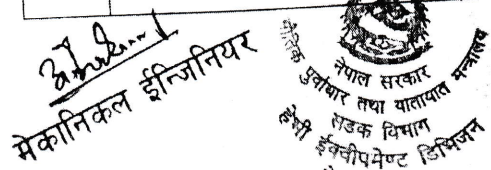 मेकानिकल ईन्जिनियर
नेपाल सरकार
भौतिक पुर्वाधार तथा यातायात मन्त्रालय
सडक विभाग
हेभी ईक्वीपमेण्ट डिभिजन